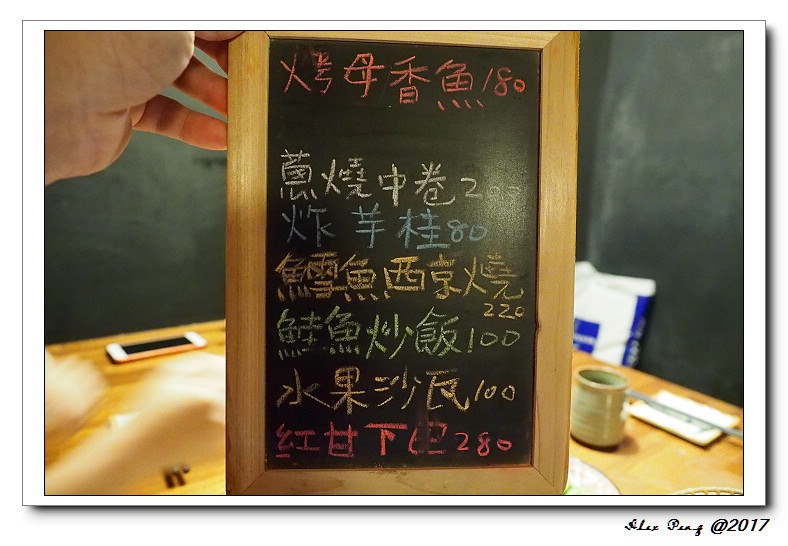 烤母香魚180
蔥燒中卷200
炸芋桂80
鱈魚西京燒
220
鮭魚炒飯100
水果沙瓦100
紅甘下巴280
Alex Peng @2017